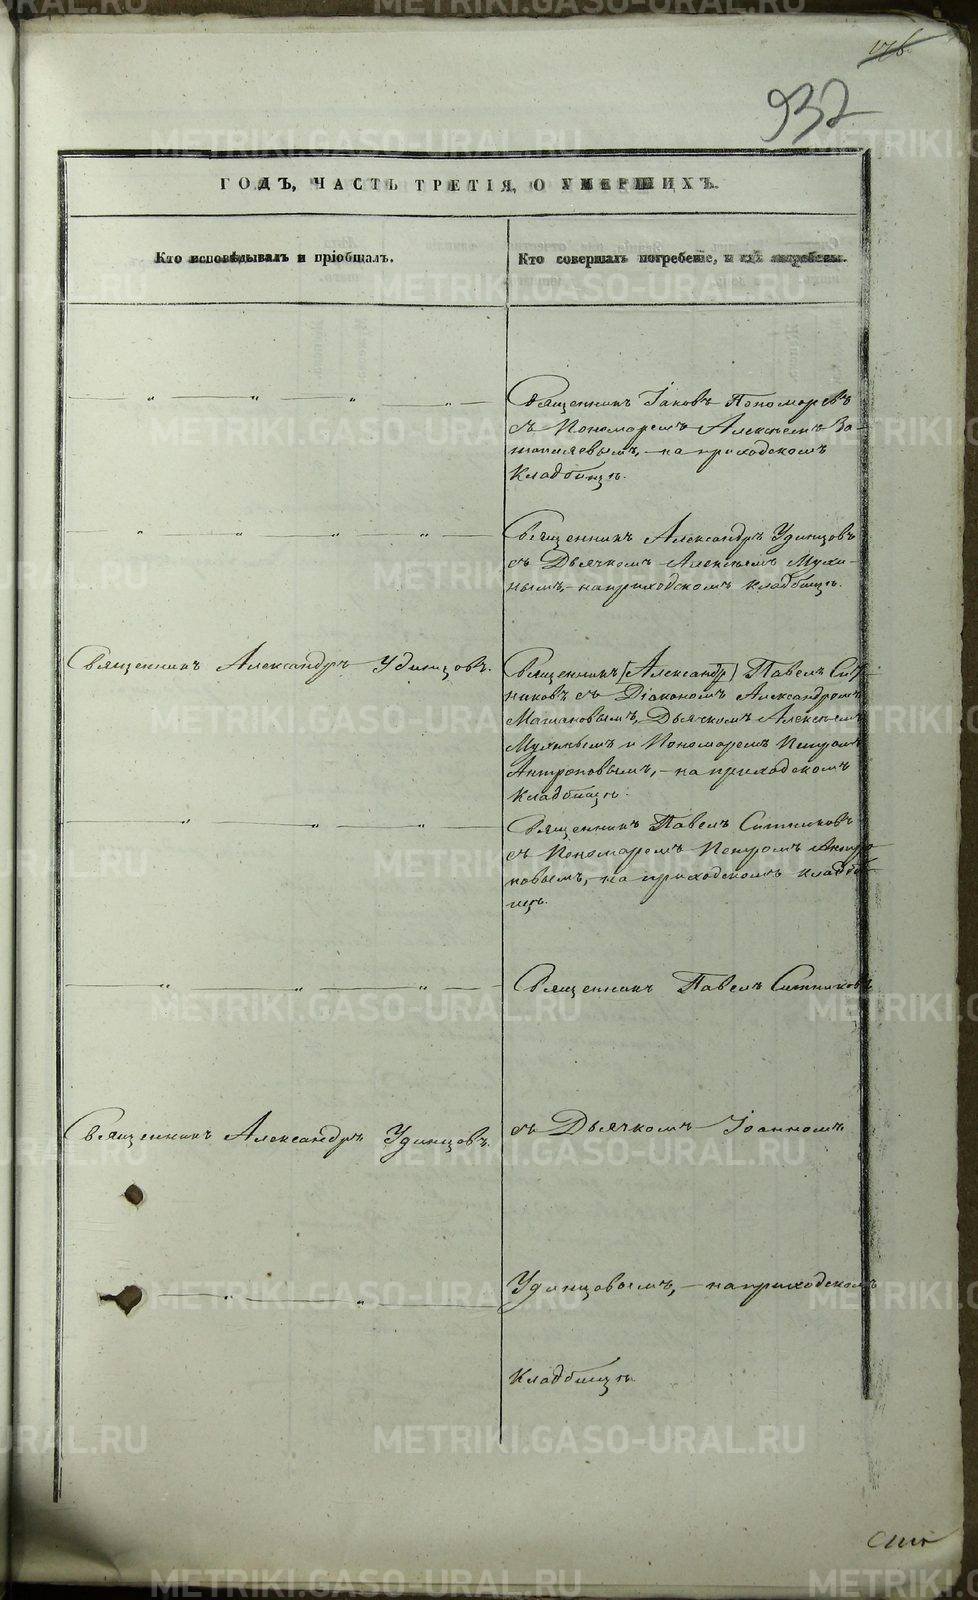 176.
932
ГОДЪ, ЧАСТЬ ТРЕТІЯ, О УМЕРШИХЪ.
Кто исповѣдывалъ и пріобщалъ.
Кто совершалъ погребеніе, и гдѣ погребены.
Священникъ Іаковъ Пономаревъ
съ Пономаремъ Алексѣемъ За-
на приходскомъ
Кладбищѣ.
Священникъ Александръ Удинцовъ
съ Дьячкомъ Алексѣемъ Мухи-
нымъ, на приходскомъ кладбищѣ.
Священникъ Александръ Удинцовъ.
Священникъ [Александр] Павелъ Сит-
никовъ съ Діакономъ Александромъ
Дьячкомъ Алексѣемъ
и Пономаремъ Петромъ
Антроповымъ, на приходскомъ
Кладбищѣ.
Священникъ Павелъ Ситниковъ
съ Пономаремъ Петромъ Антро-
повымъ, на приходскомъ кладби-
щѣ.
Священникъ Павелъ Ситниковъ
Священникъ Александръ Удинцовъ.
съ Дьячкомъ Іоанномъ
Удинцовымъ, на приходскомъ
Кладбищѣ
METRIKI.GASO-URAL.RU